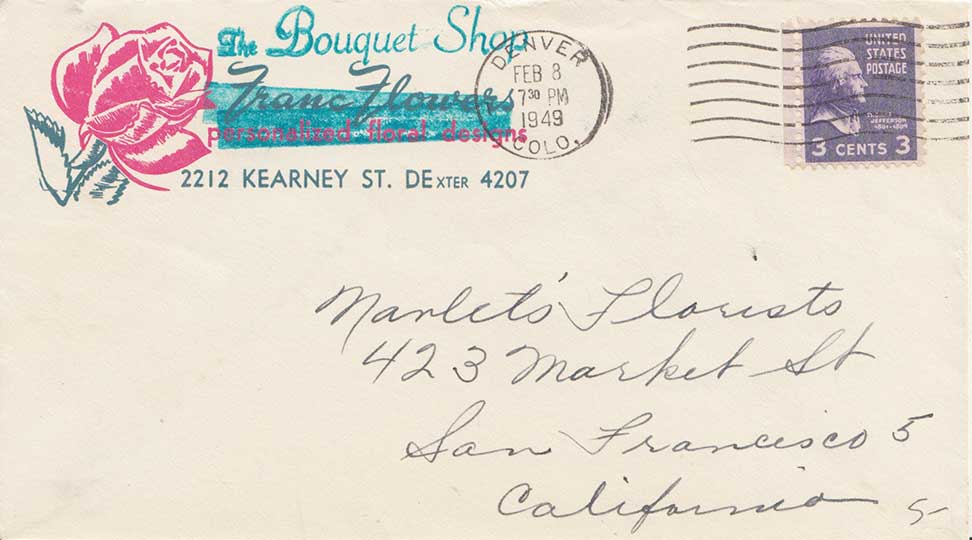 The Bouquet Shop
Franc Flowers
personalized floral designs
2212 KEARNEY ST. DEXTER 4207
DENVER
FEB 8
7 30 PM
1949
COLO.
UNITED
STATES
POSTAGE
THOMAS
JEFFERSON
1801-1809
3 CENTS 3
Manlet's Florists
423 Market St
San Francisco 5
California